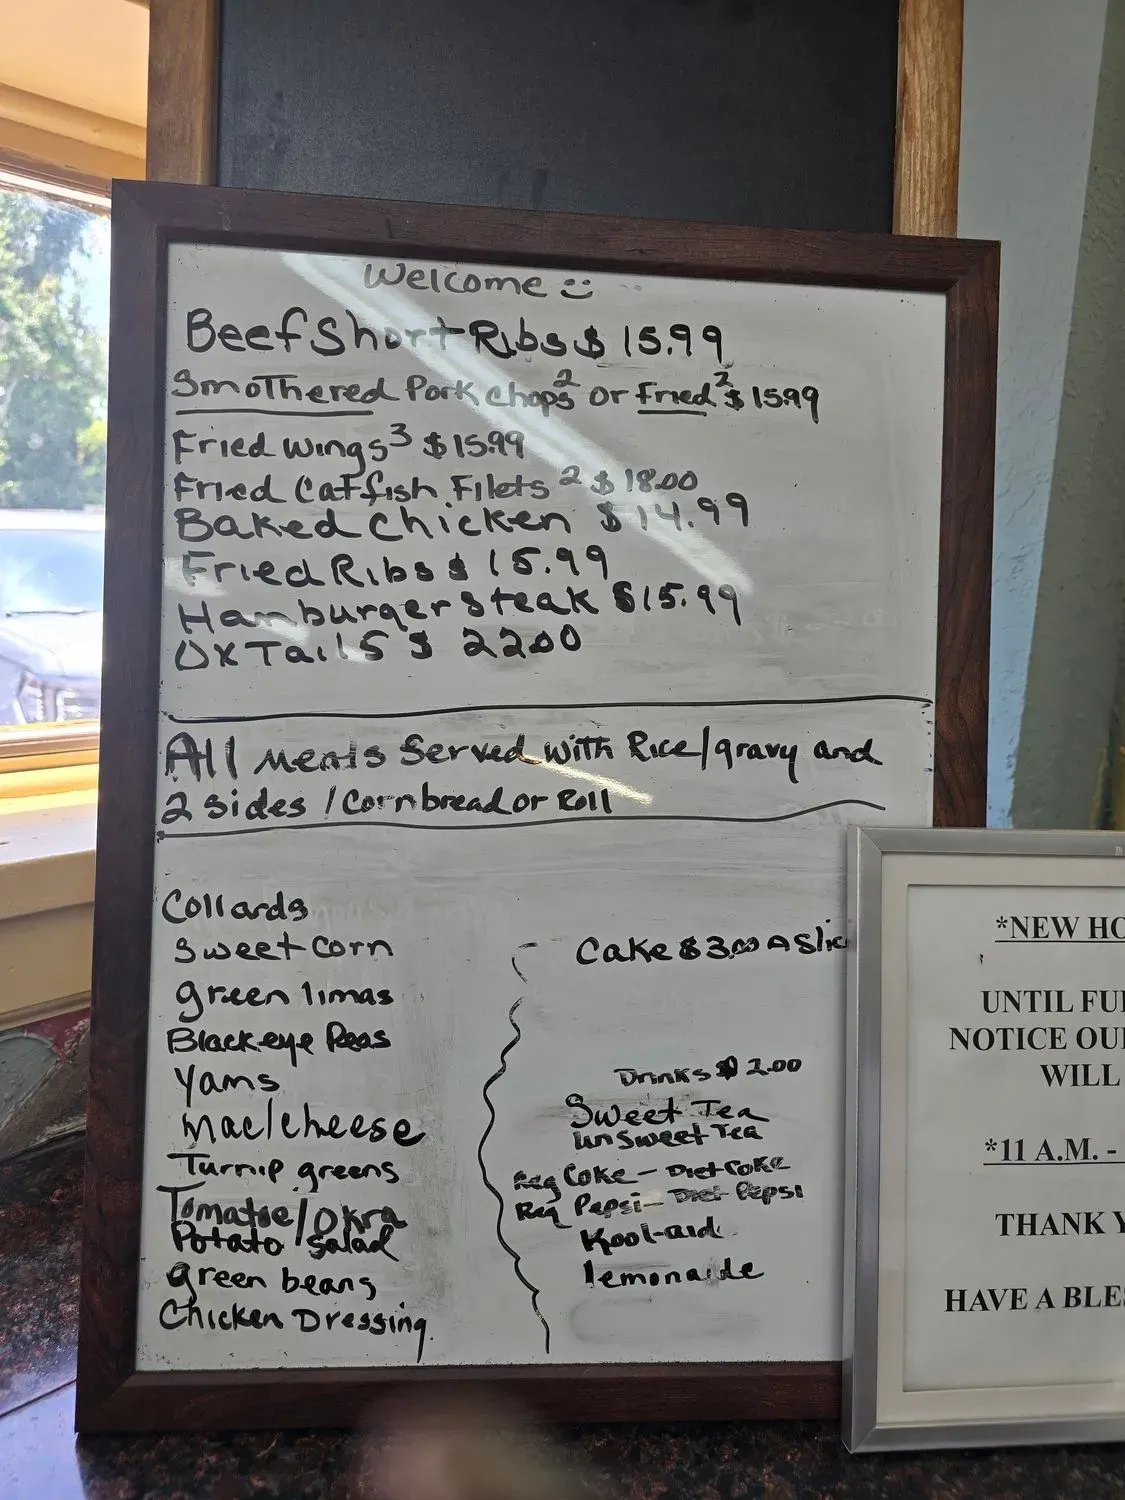 Welcome :)
Beef Short Ribs $ 15.99
Smothered Pork Chops 2 or Fried 2 $ 15.99
Fried Wings 3 $ 15.99
Fried Catfish Filets 2 $ 18.00
Baked Chicken $ 14.99
Fried Ribs $ 15.99
Hamburger Steak $ 15.99
OxTails $ 22.00
All Meals Served with Rice/gravy and
2 sides / Cornbread or Roll
Collards
Sweet Corn
green limas
Blackeye Peas
Yams
Mac/cheese
Turnip greens
Tomatoe/Okra
Potato salad
green beans
Chicken Dressing
Cake $3.00 A Slic
Drinks $ 2.00
Sweet Tea
unSweet Tea
Reg Coke - Diet Coke
Reg Pepsi - Diet Pepsi
Kool-aid
lemonade
*NEW HO
UNTIL FU
NOTICE OU
WILL
*11 A.M. -
THANK Y
HAVE A BLES